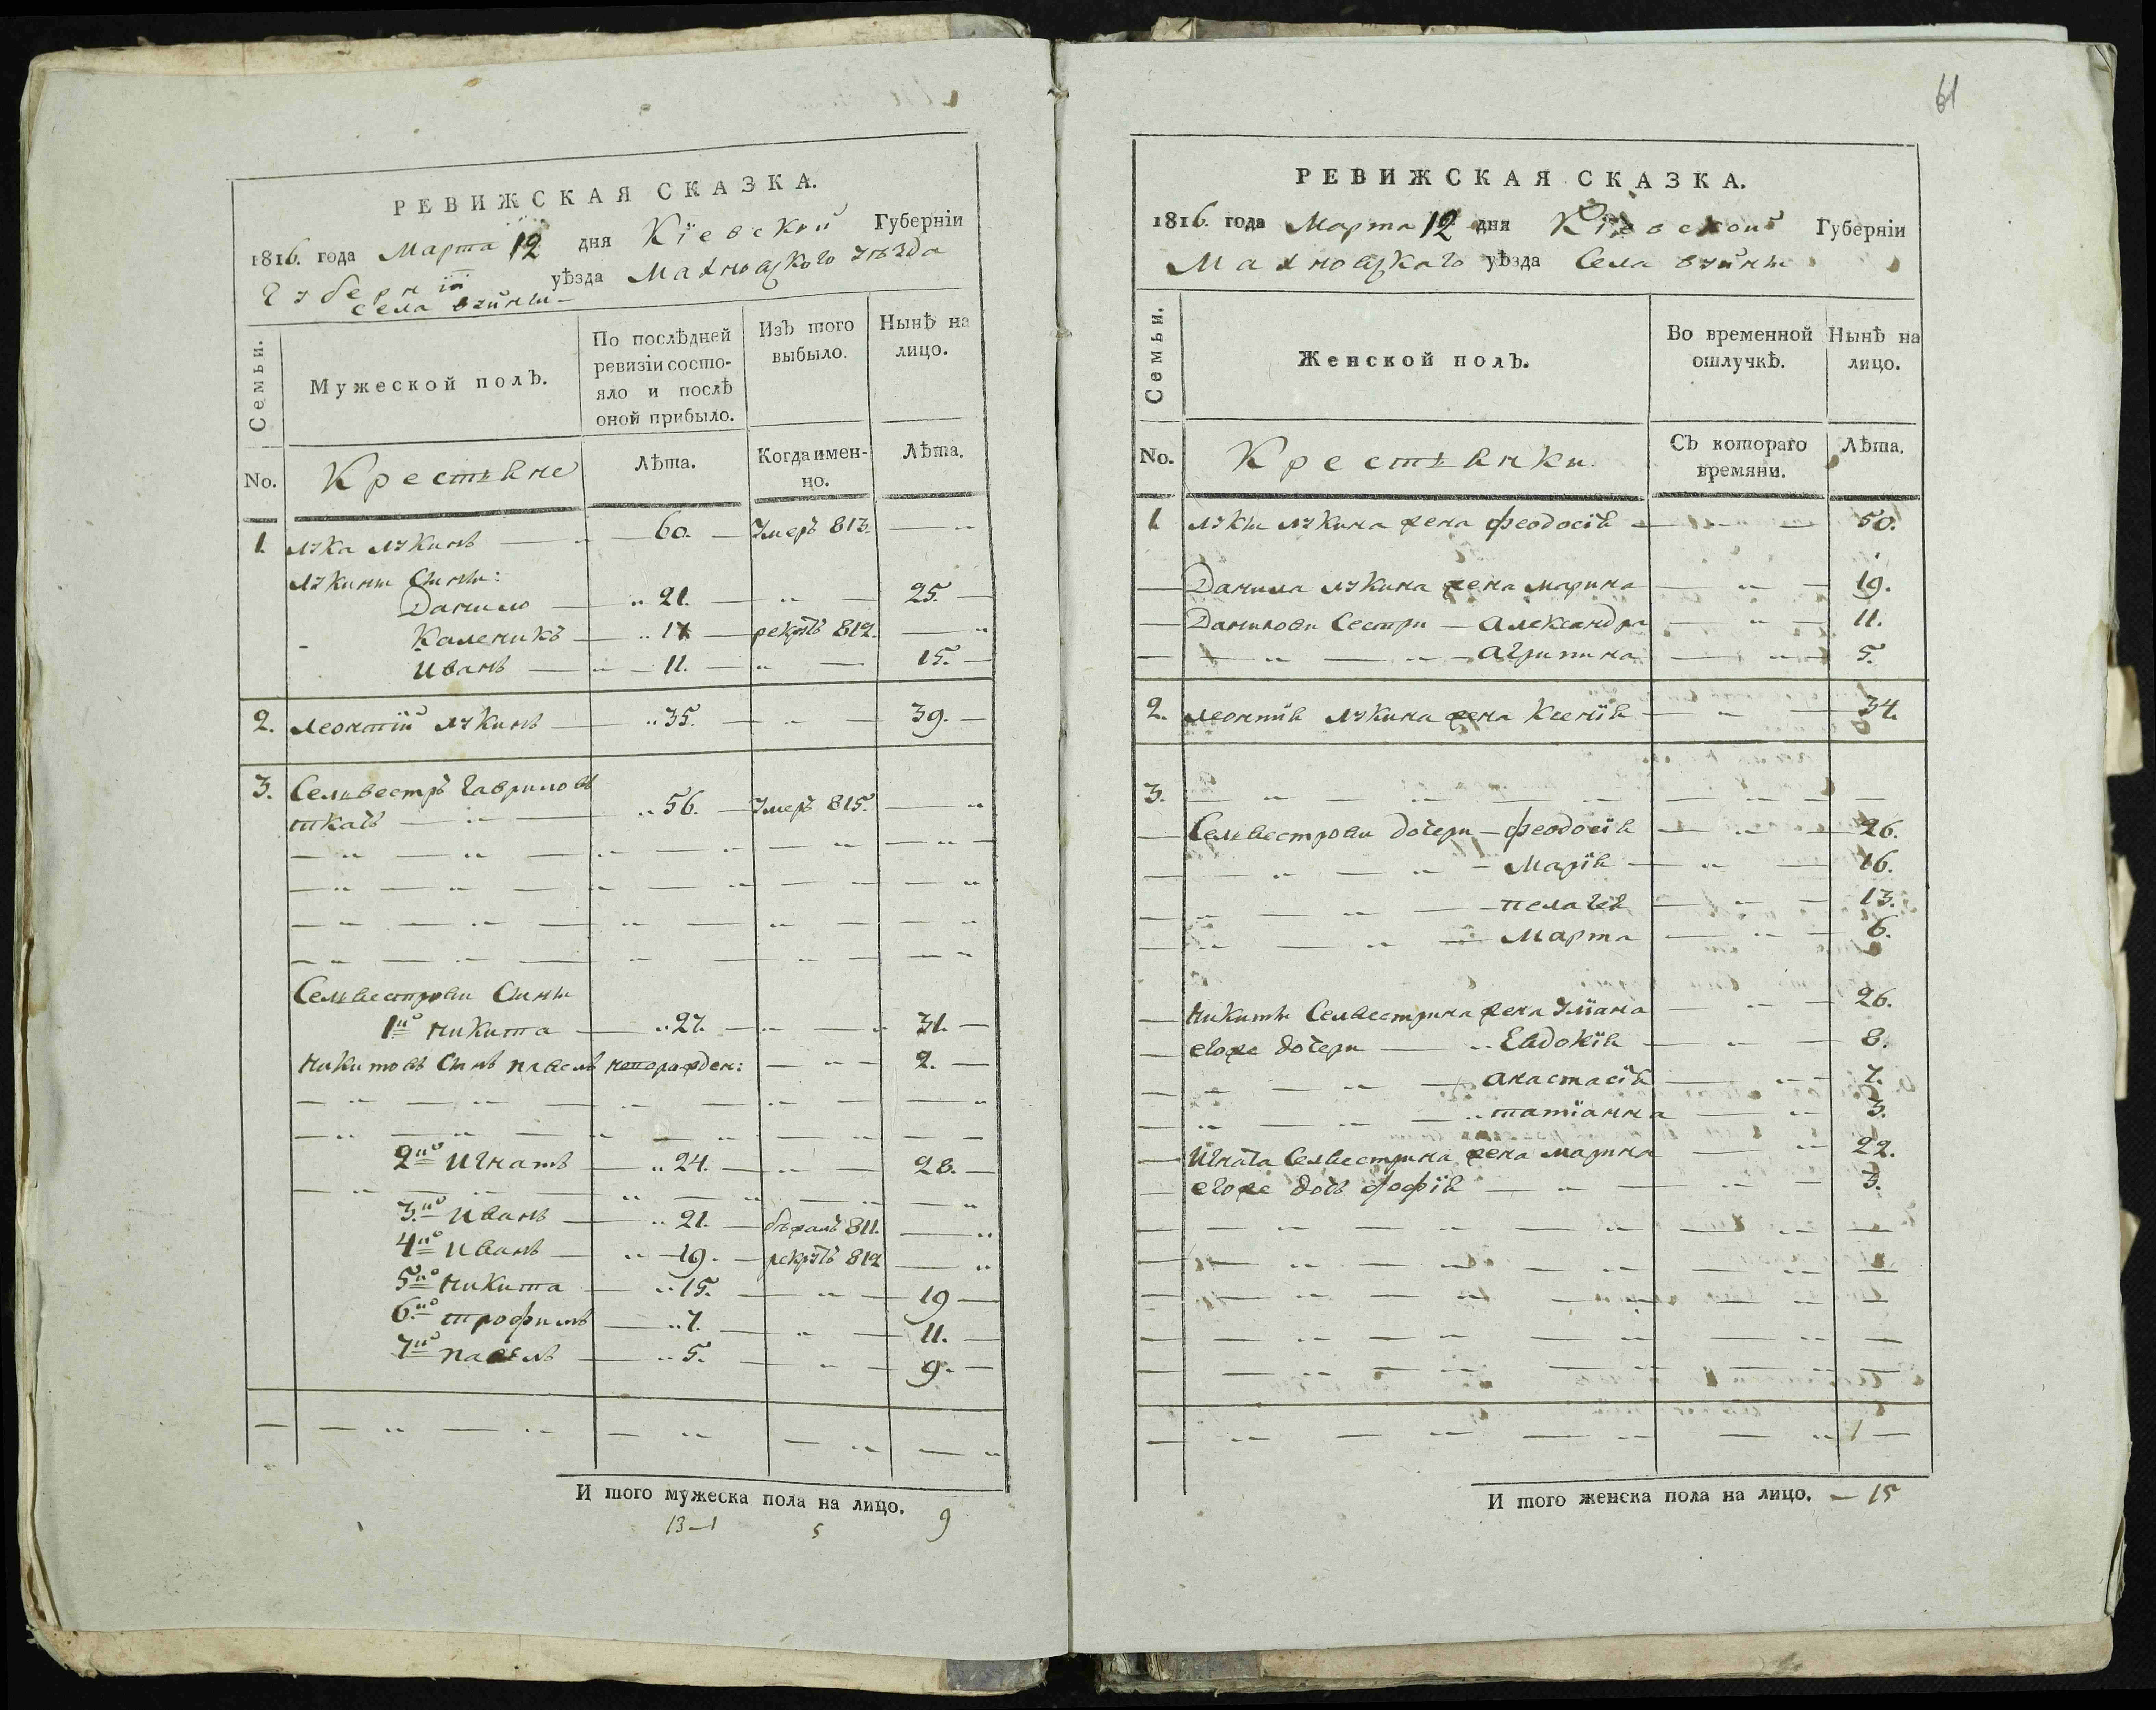 61
РЕВИЖСКАЯ СКАЗКА.
1816. года Марта 12 дня Кїевской Губернїи
Губернїи уѣзда Махновского уѣзда
села
Семьи.
Мужеской полЪ.
По послѣдней ревизїи состояло и послѣ оной прибыло.
ИзЪ того выбыло.
Нынѣ на лицо.
No.
Крестьяне
Лѣта.
Когда именно.
Лѣта.
1. Лука Лукинъ — 60. — Умеръ 813. —
Лукины Сины:
Данило — 21. — 25. —
Каленикъ — 17 — рекрутъ 812. —
Иванъ — 11. — 15. —
2. Леонтїй Лукинъ — 35. — 39. —
3. Селивестръ Гавриловъ
ткачъ — 56. — Умеръ 815. —
Селивестрови Сины
1й Никита — 27. — 31. —
Никитовъ Синъ Павелъ новорожден: — 2. —
2й Игнатъ — 24. — 28. —
3й Иванъ — 21. — бѣжалъ 811. —
4й Иванъ — 19. — рекрутъ 812 —
5й Никита — 15. — 19 —
6й Трофимъ — 7. — 11. —
7й Павелъ — 5. — 9. —
И того мужеска пола на лицо. 9
13—1 5
РЕВИЖСКАЯ СКАЗКА.
1816. года Марта 12 дня Кїевской Губернїи
Махновскаго уѣзда Села
Семьи.
Женской полЪ.
Во временной отлучкѣ.
Нынѣ на лицо.
No.
Крестьянки
СЪ котораго времяни.
Лѣта.
1. Луки Лукина жена Феодосїя — 50.
— Данила Лукина жена Марина — 19.
— Данилови Сестри — Александра — 11.
— Агрипина — 5.
2. Леонтїя Лукина жена Ксенїя — 34.
3.
— Селвестрови дочери — Феодосїя — 26.
— Марїя — 16.
— Пелагея — 13.
— Марта — 6.
— Никити Селвестрина жена Улїана — 26.
— егоже дочери — Евдокїя — 8.
— Анастасїя — 7.
— Татїанна — 3.
— Игната Селвестрина жена Марина — 22.
— егоже дочь Софїя — 3.
И того женска пола на лицо. — 15